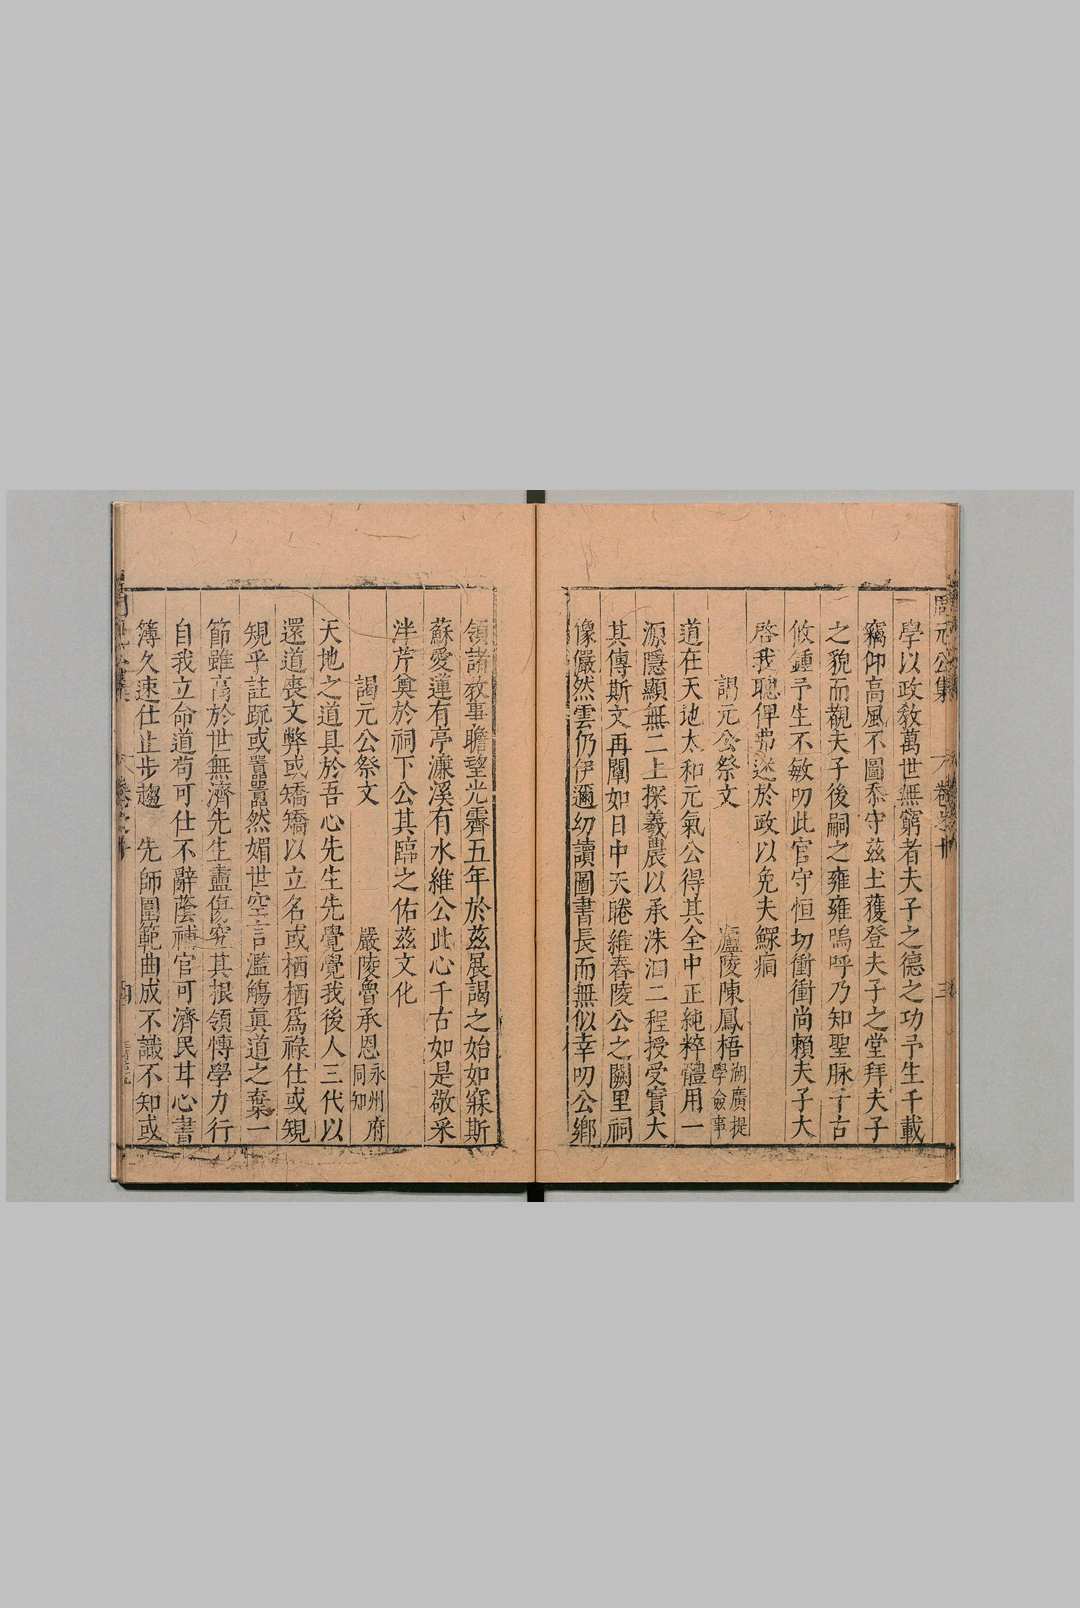 周元公集
卷之十
三
學以政教萬世無窮者夫子之德之功予生千載
竊仰高風不圖忝守茲土獲登夫子之堂拜夫子
之貌而覩夫子後嗣之雍雍嗚呼乃知聖脉千古
攸鍾予生不敏叨此官守恒切衝衝尚賴夫子大
啓我聰俾弗迷於政以免夫鰥痌
謁元公祭文 廬陵陳鳳梧湖廣提學僉事
道在天地太和元氣公得其全中正純粹體用一
源隱顯無二上探羲農以承洙泗二程授受實大
其傳斯文再闡如日中天睠維舂陵公之闕里祠
像儼然雲仍伊邇幼讀圖書長而無似幸叨公鄉
領諸教事瞻望光霽五年於茲展謁之始如寐斯
蘇愛蓮有亭濂溪有水維公此心千古如是敬采
泮芹奠於祠下公其臨之佑茲文化
謁元公祭文 嚴陵魯承恩永州府同知
天地之道具於吾心先生先覺覺我後人三代以
還道喪文弊或矯矯以立名或栖栖爲祿仕或規
規乎註疏或囂囂然媚世空言濫觴眞道之棄一
節雖高於世無濟先生盡傷究其根領愽學力行
自我立命道苟可仕不辭蔭補官可濟民甘心書
簿久速仕止步趨 先師圍範曲成不識不知或
卷之十
四